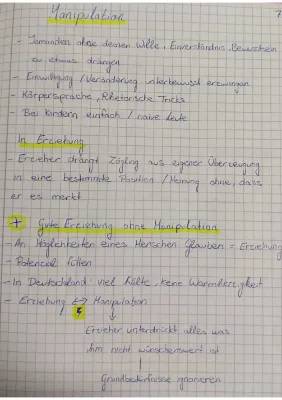 Manipulation
- Jemanden ohne deinen Wille, Einverständnis, Bewusstsein
zu etwas drängen
- Einwilligung / Veränderung unterbewusst erzwingen
- Körpersprache, Rhetorische Tricks
- Bei Kindern einfach / naive Leute
In Erziehung
- Erzieher drängt Zögling aus eigener Überzeugung
in eine bestimmte Position / Meinung ohne, dass
er es merkt
+ Gute Erziehung ohne Manipulation
- An Möglichkeiten eines Menschen Glauben = Erziehung
- Potenzial
- In Deutschland viel Kälte, keine Warmherzigkeit
- Erziehung ↔ Manipulation
Erzieher unterdrückt alles was
ihm nicht wünschenswert ist
Grundbedürfnisse ignorieren